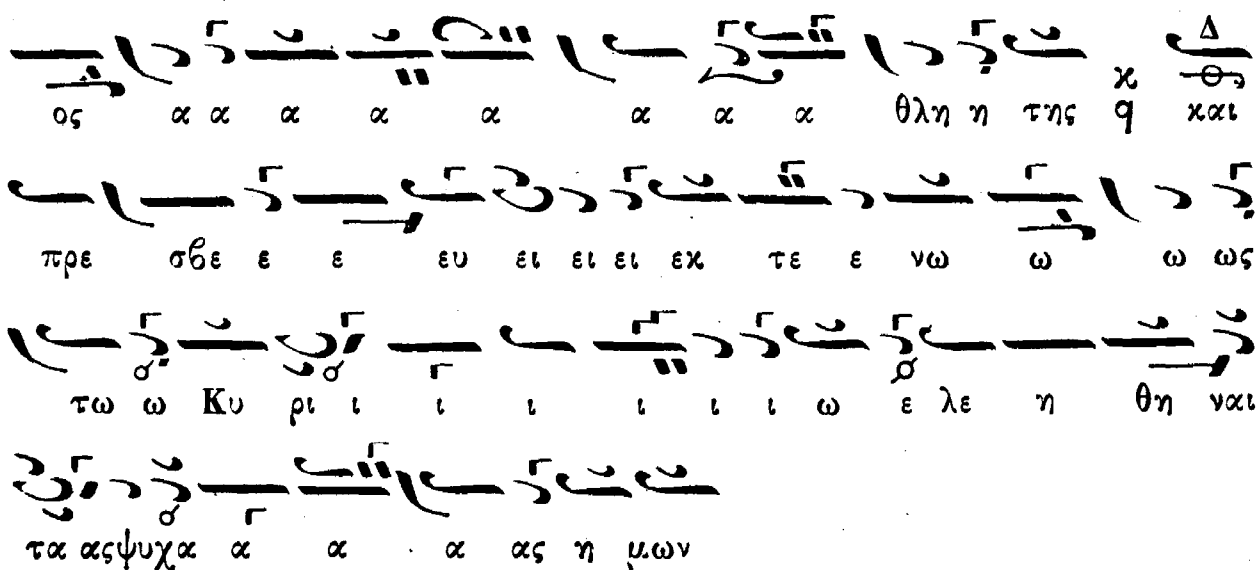 ος α α α α α α α α θλη η της ϰ q και
πρε σβε ε ε ευ ει ει ει εκ τε ε νω ω ω ως
τω ω Κυ ρι ι ι ι ι ι ι ω ε λε η θη ναι
τα ας ψυχα α α α ας η μων